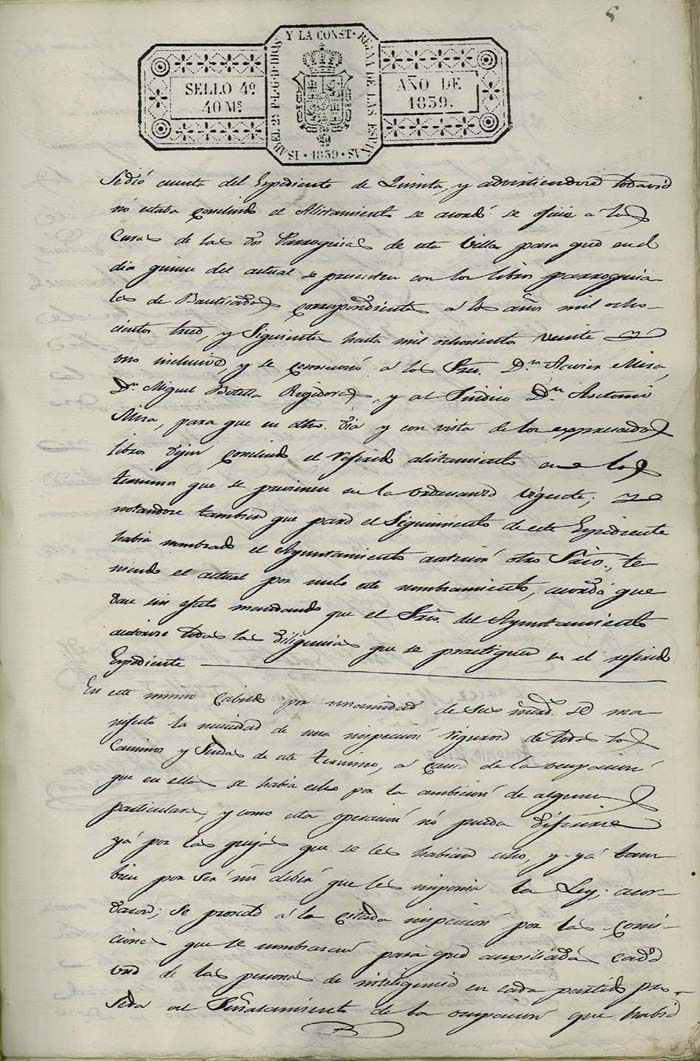 5
ISABEL 2ª P.L.G.D.DIOS Y LA CONST. REINA DE LAS ESPAÑAS
SELLO 4º
40 Mˢ
AÑO DE
1839.
1839
Se dió cuenta del Expediente de Quinta, y advirtiendose todavia
no estaba concluido el Alistamiento se acordó se oficie a los
Curas de las dos Parroquias de esta Villa para que en el
dia quince del actual se presenten con los libros parroquia
les de Bautizados correspondientes a los años mil ocho
cientos tres, y siguientes hasta mil ochocientos veinte y
uno inclusive y se comisionó a los Sres. Dn. Xavier Mira,
Dn. Miguel Botella Regidores, y al Sindico Dn. Antonio
Mira, para que en dicho dia y con vista de los expresados
libros dejen concluido el referido alistamiento en los
terminos que se previenen en la ordenanza vigente; y
notandose tambien que para el Seguimiento de este Expediente
habia nombrado el Ayuntamiento anterior otro Srio., te
niendo el actual por nulo este nombramiento, acordó que
dase sin efecto mandando que el Srio. del Ayuntamiento
autorize todas las diligencias que se practiquen en el referido
Expediente
En este mismo Cabildo por unanimidad de Sus mrds. se ma
nifestó la necesidad de una inspeccion rigurosa de todos los
Caminos y Sendas de este termino, a causa de la ocupacion
que en ellos se habia hecho por la ambicion de algunos
particulares; y como esta operacion no pueda diferirse
ya por las quejas que se les habian hecho, y ya tam
bien por ser un deber que les imponia la Ley; acor
daron; se proceda a la citada inspecion por las Comi
ciones que se nombraran para que auxiliadas cada
una de las personas de inteligencia en cada partido pro
ceda al Señalamiento de la ocupacion que habrá